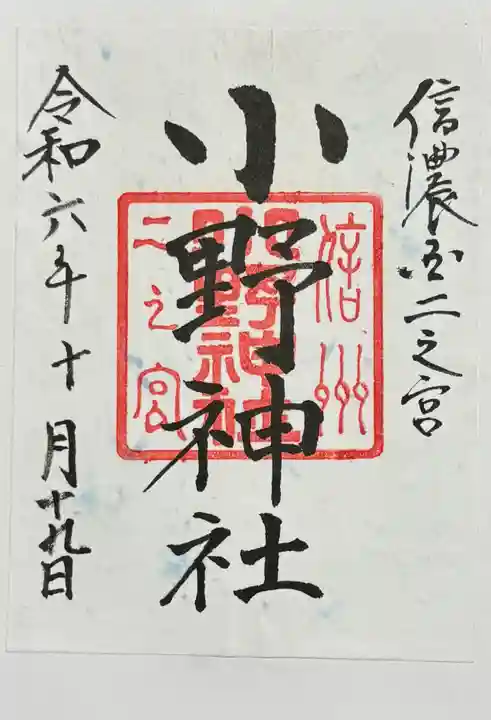 信濃国二之宮
小野神社
信州
二之宮
令和六年十月十九日